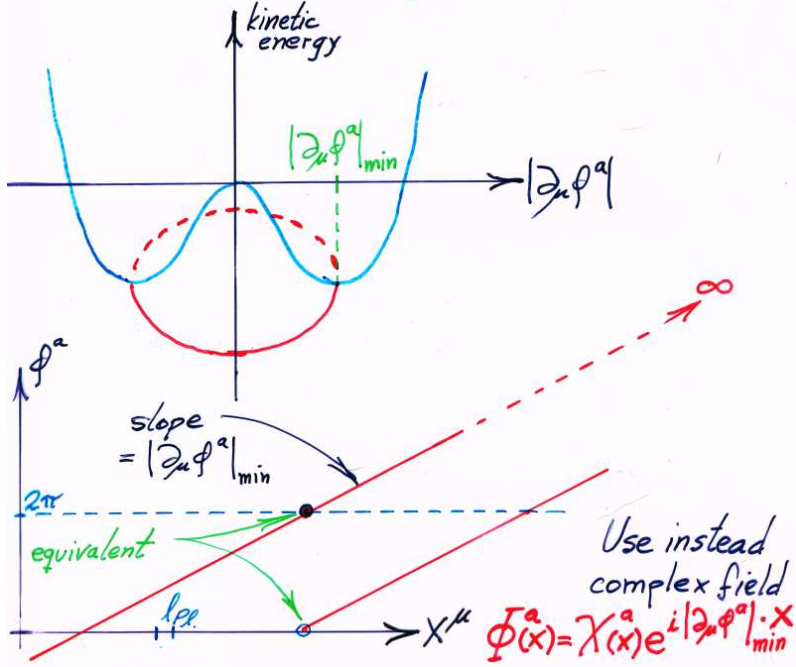 kinetic
energy
|∂μφᵃ|min
|∂μφᵃ|
∞
φᵃ
slope
= |∂μφᵃ|min
2π
equivalent
lPl
Xμ
Use instead
complex field
Φᵃ(x) = χᵃ(x) e^{i|∂μφᵃ|min·x}